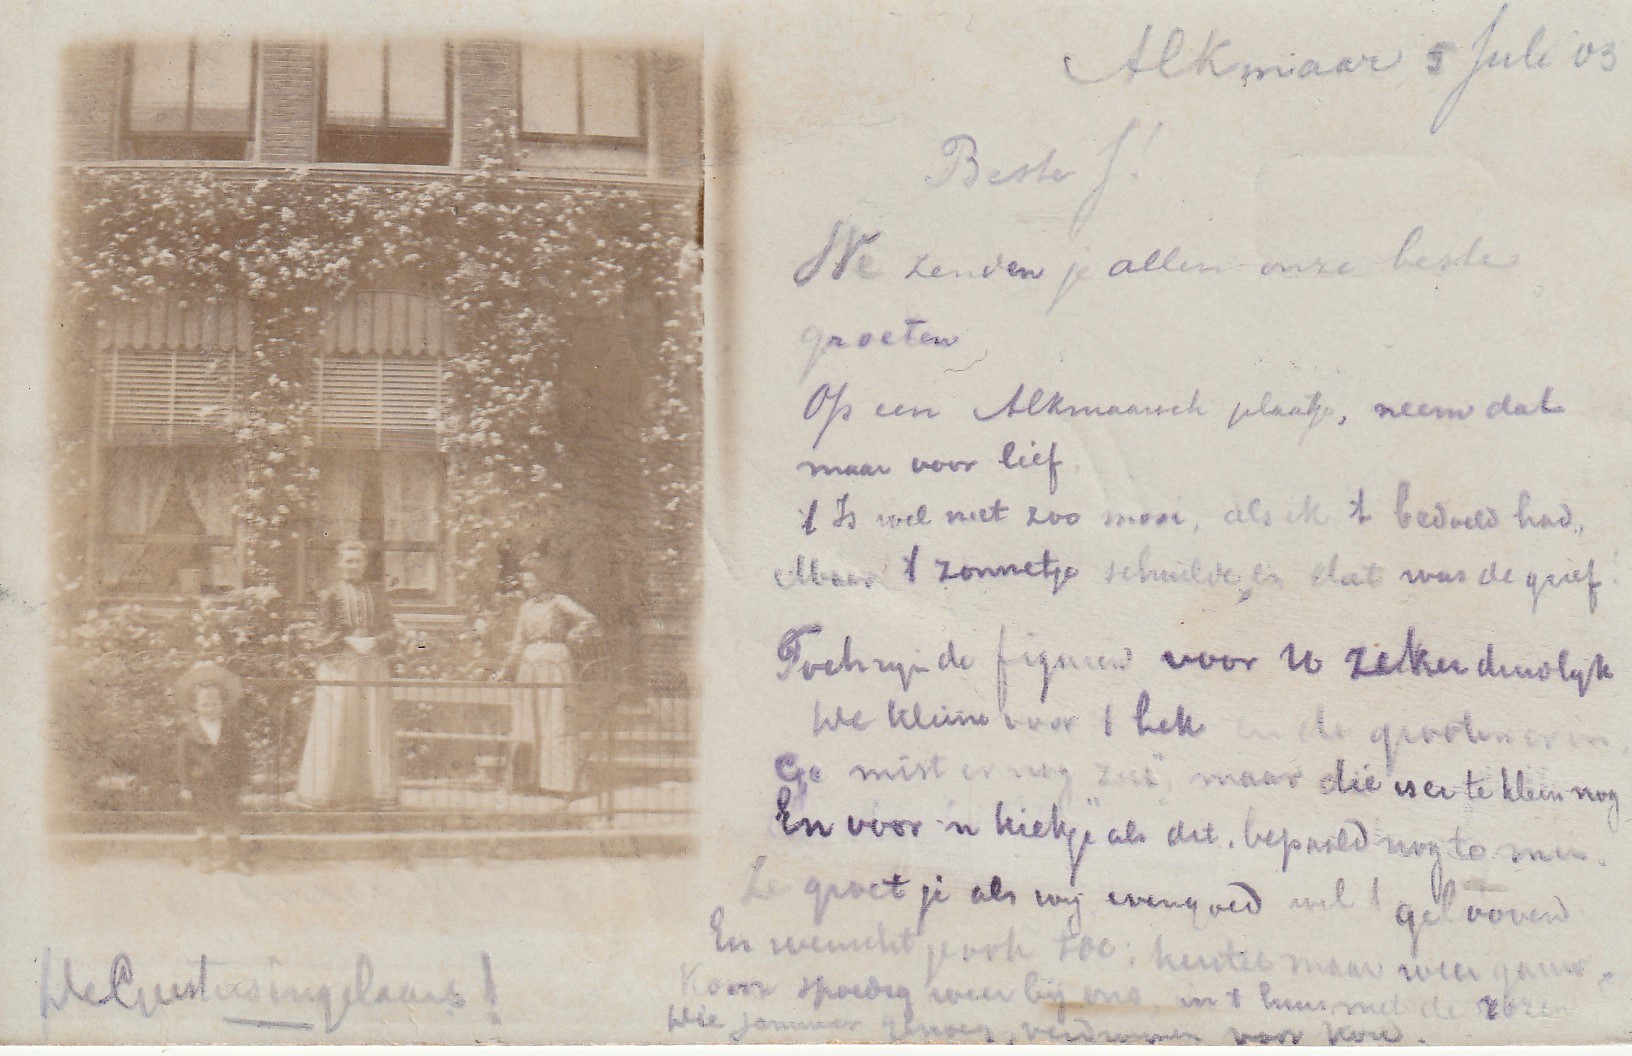 Alkmaar 5 Juli '03
Beste J!
We zenden je allen onze beste
groeten
Op een Alkmaarsch plaatje, neem dat
maar voor lief.
't Is wel niet zoo mooi, als ik 't bedoeld had,
Maar 't zonnetje schuilde, en dat was de grief!
Toch zijn de figuren voor U zeker duidlijk
De kleine voor 't hek en de grooten er in,
Ge mist er nog zus, maar die is er te klein nog
En voor 'n "kiekje" als dit, bepaald nog te min.
Ze groet je als wij evengoed wel 't geloovend
En wenscht je ook toe: herstel maar weer gauw.
Kom spoedig weer bij ons, in 't huis met de rozen
Die jammer genoeg, verdwenen voor kou.
De Geestersingelaars!